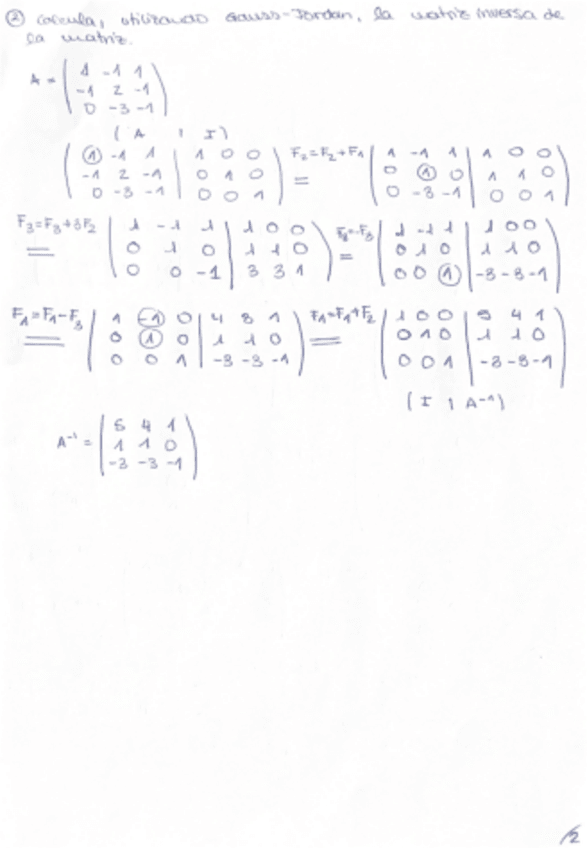 ② Calcula, utilizando Gauss-Jordan, la matriz inversa de
la matriz.
A = ( 1 -1 1
-1 2 -1
0 -3 -1 )
( A | I )
( ① -1 1 | 1 0 0
-1 2 -1 | 0 1 0
0 -3 -1 | 0 0 1 )
F₂=F₂+F₁
=
( 1 -1 1 | 1 0 0
0 ① 0 | 1 1 0
0 -3 -1 | 0 0 1 )
F₃=F₃+3F₂
=
( 1 -1 1 | 1 0 0
0 1 0 | 1 1 0
0 0 -1 | 3 3 1 )
F₃=-F₃
=
( 1 -1 1 | 1 0 0
0 1 0 | 1 1 0
0 0 ① | -3 -3 -1 )
F₁=F₁-F₃
=
( 1 -1 0 | 4 3 1
0 ① 0 | 1 1 0
0 0 1 | -3 -3 -1 )
F₁=F₁+F₂
=
( 1 0 0 | 5 4 1
0 1 0 | 1 1 0
0 0 1 | -3 -3 -1 )
( I | A⁻¹ )
A⁻¹ = ( 5 4 1
1 1 0
-3 -3 -1 )
/2